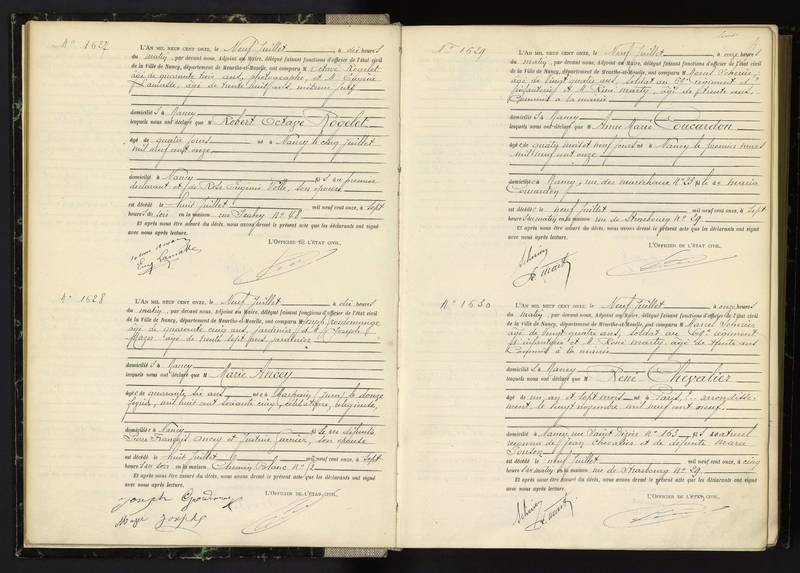 N° 1627
L'AN MIL NEUF CENT ONZE, le Neuf Juillet à dix heures
du matin, par devant nous, Adjoint au Maire, délégué faisant fonctions d'officier de l'état civil
de la Ville de Nancy, département de Meurthe-et-Moselle, ont comparu M Octave Rogelet
âgé de quarante trois ans, photographe, et M. Eugène
âgé de trente huit ans
domiciliés à Nancy
lesquels nous ont déclaré que M Robert Octave Rogelet
âgé de quatre jours né à Nancy le cinq juillet
mil neuf cent onze
domicilié à Nancy fils du premier
déclarant et de Rose Eugénie son épouse
est décédé le huit Juillet mil neuf cent onze, à sept
heures du soir en la maison rue N° 48
Et après nous être assuré du décès, nous avons dressé le présent acte que les déclarants ont signé
avec nous après lecture.
L'OFFICIER DE L'ÉTAT CIVIL,
N° 1628
L'AN MIL NEUF CENT ONZE, le Neuf Juillet à dix heures
du matin, par devant nous, Adjoint au Maire, délégué faisant fonctions d'officier de l'état civil
de la Ville de Nancy, département de Meurthe-et-Moselle, ont comparu M Joseph
âgé de quarante cinq ans, jardinier et M Joseph
Maze âgé de trente sept ans jardinier
domiciliés à Nancy
lesquels nous ont déclaré que M Marie Ancey
âgée de quarante six ans née à (Jura) le douze
mil huit cent soixante cinq, célibataire, religieuse,
domiciliée à Nancy fille de défunts
Pierre François Ancey et Justine son épouse
est décédée le huit Juillet mil neuf cent onze, à sept
heures du soir en la maison Chemin Blanc N° 12
Et après nous être assuré du décès, nous avons dressé le présent acte que les déclarants ont signé
avec nous après lecture.
L'OFFICIER DE L'ÉTAT CIVIL,
Joseph
Maze Joseph
N° 1629
L'AN MIL NEUF CENT ONZE, le Neuf Juillet à onze heures
du matin, par devant nous, Adjoint au Maire, délégué faisant fonctions d'officier de l'état civil
de la Ville de Nancy, département de Meurthe-et-Moselle, ont comparu M Marcel
âgé de vingt quatre ans, soldat au 69e régiment d'
infanterie et M. René Marty, âgé de trente ans
Commis à la mairie
domiciliés à Nancy
lesquels nous ont déclaré que M Anne Marie Coucardon
âgée de quatre mois et neuf jours née à Nancy le premier mars
mil neuf cent onze
domiciliée à Nancy, rue des Maréchaux N° 23 fille de Maria
Coucardon
est décédée le neuf Juillet mil neuf cent onze, à sept
heures du matin en la maison rue de Strasbourg N° 29
Et après nous être assuré du décès, nous avons dressé le présent acte que les déclarants ont signé
avec nous après lecture.
L'OFFICIER DE L'ÉTAT CIVIL,
R. Marty
N° 1630
L'AN MIL NEUF CENT ONZE, le Neuf Juillet à onze heures
du matin, par devant nous, Adjoint au Maire, délégué faisant fonctions d'officier de l'état civil
de la Ville de Nancy, département de Meurthe-et-Moselle, ont comparu M Marcel
âgé de vingt quatre ans, soldat au 69e régiment
d'infanterie et M. René Marty âgé de trente ans
Commis à la mairie
domiciliés à Nancy
lesquels nous ont déclaré que M René Chevalier
âgé de un an et sept mois né à Paris, arrondisse-
ment le vingt novembre mil neuf cent neuf
domicilié à Nancy rue Saint Dizier N° 153 fils naturel
reconnu de Jean Chevalier et de défunte Marie
est décédé le neuf Juillet mil neuf cent onze, à cinq
heures du matin en la maison rue de Strasbourg N° 29
Et après nous être assuré du décès, nous avons dressé le présent acte que les déclarants ont signé
avec nous après lecture.
L'OFFICIER DE L'ÉTAT CIVIL,
R. Marty